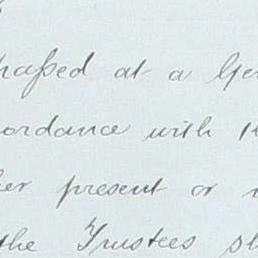 passed at a Gen
cordance with th
her present or
the Trustees sh